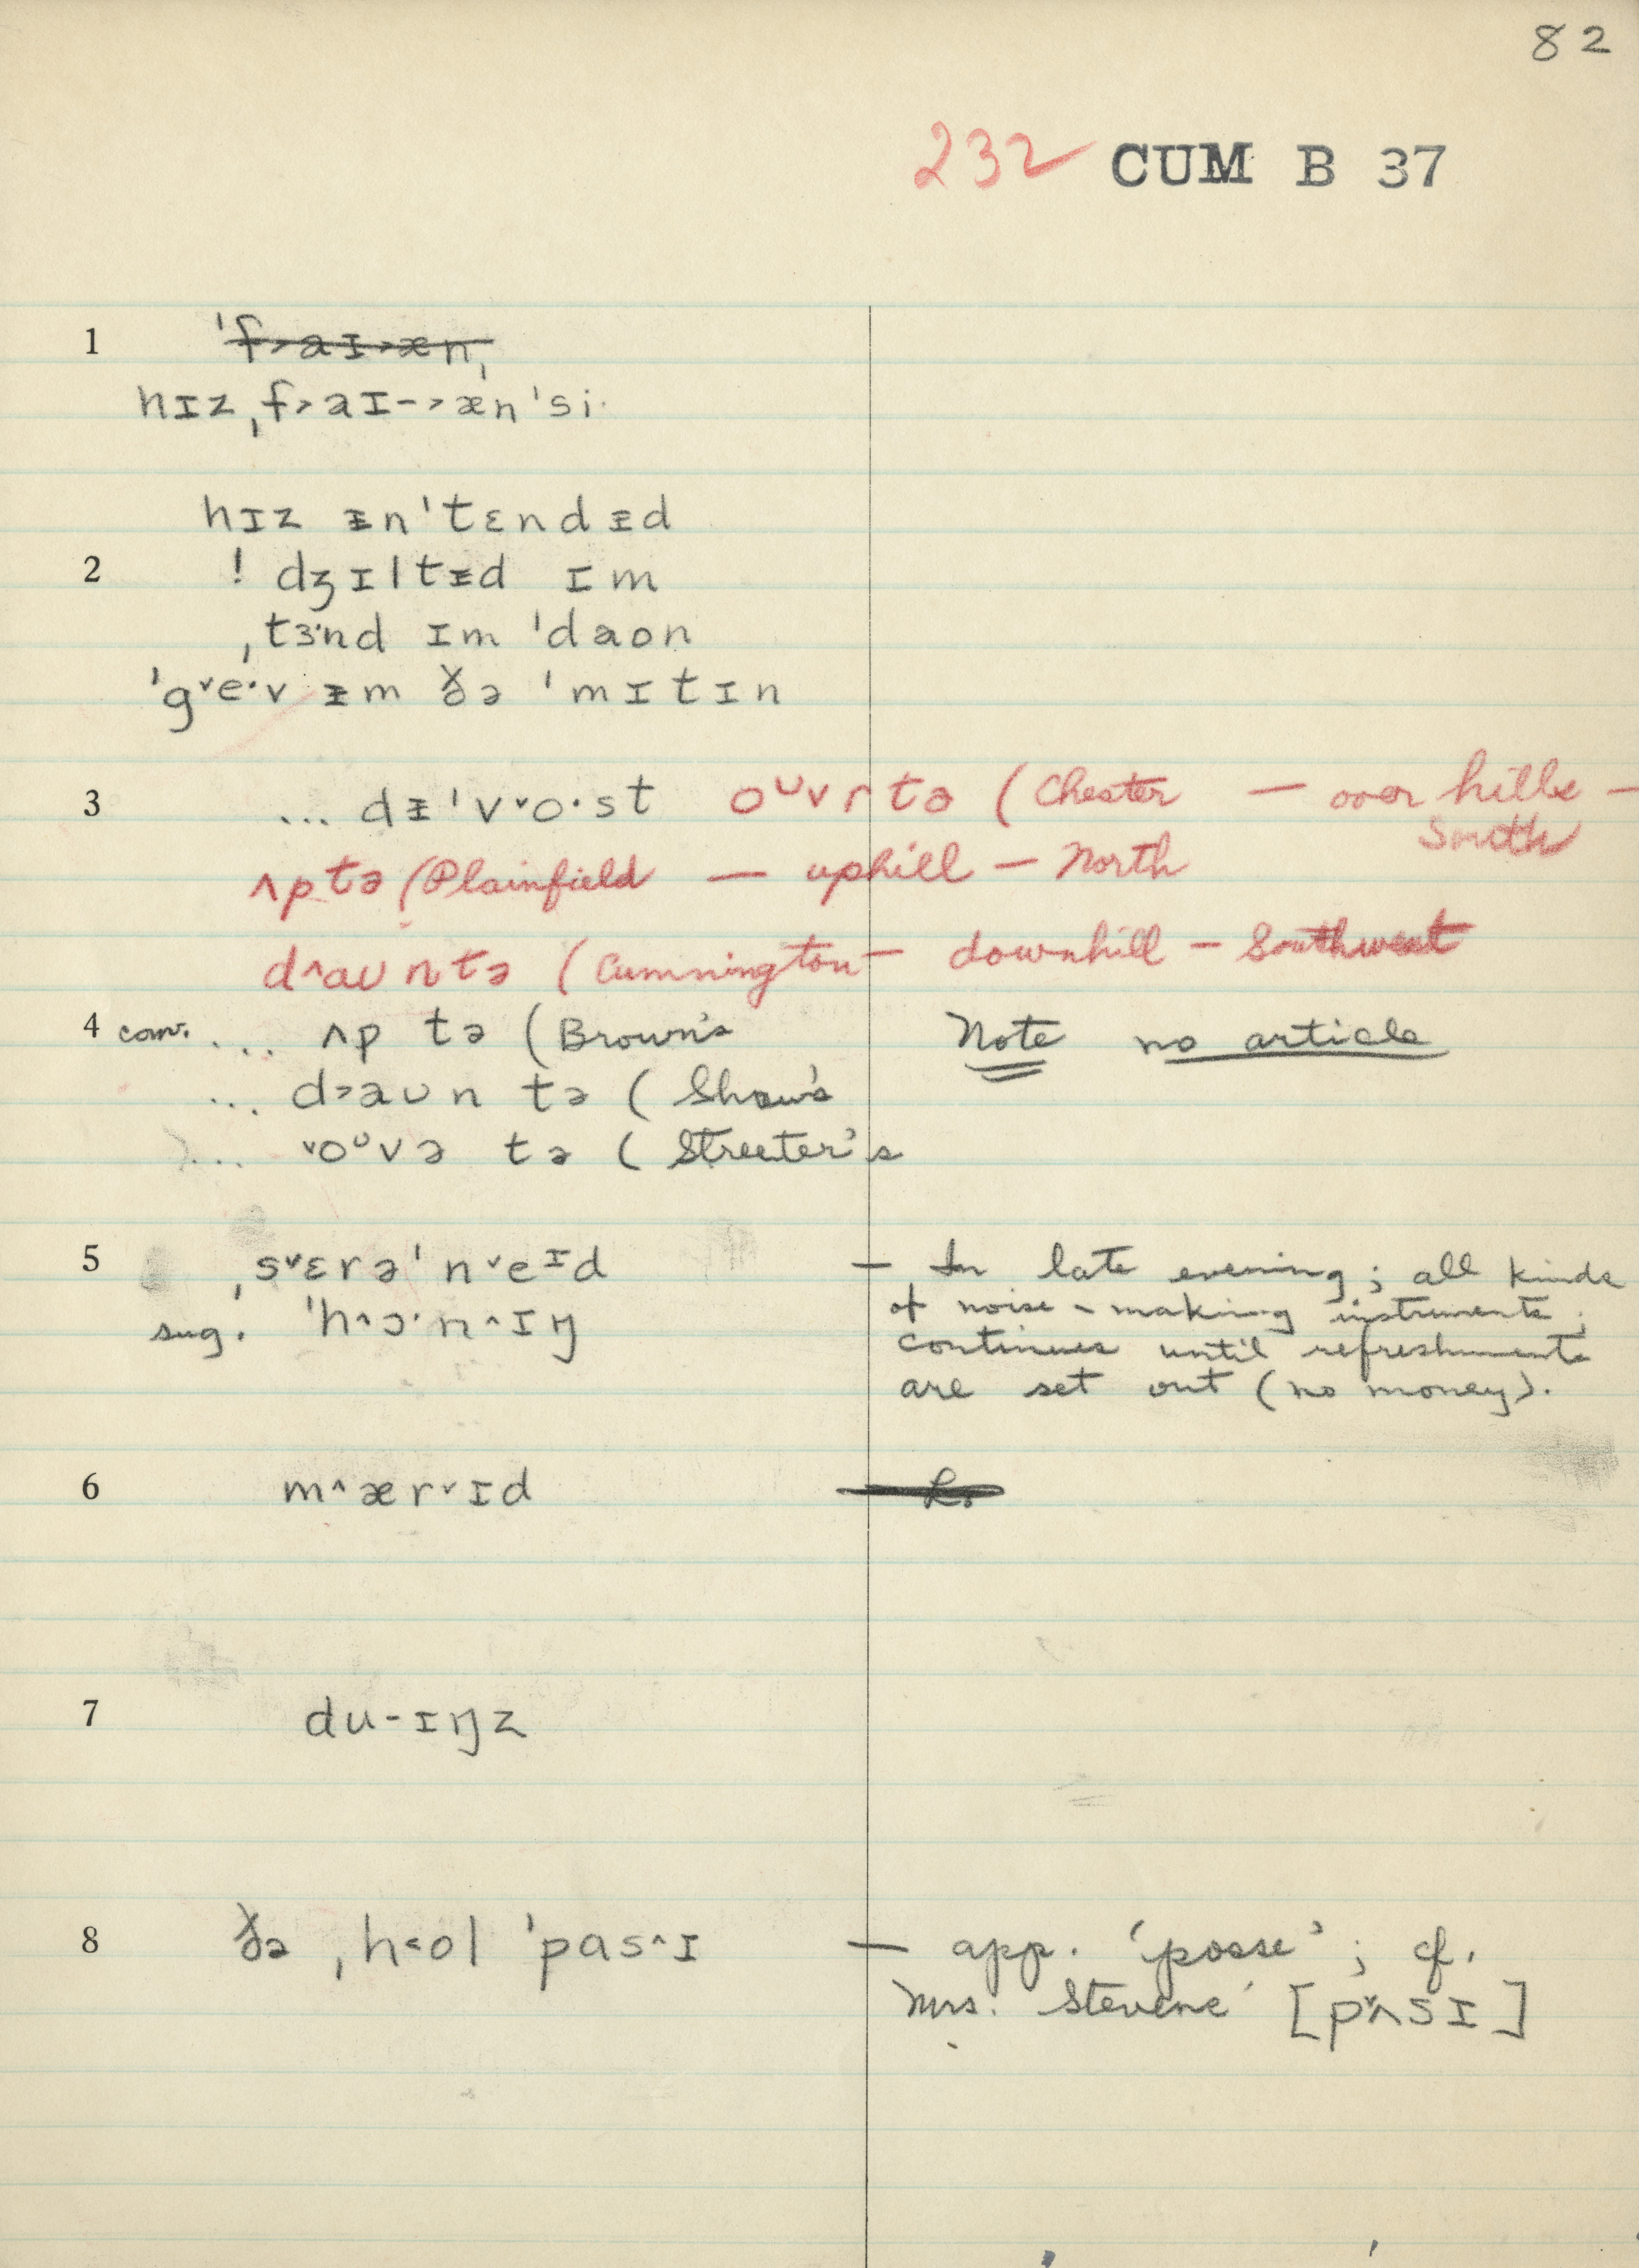 82
232 CUM B 37
1 ˈf˃aɪ˃æn,
hɪz ˌf˃aɪ-˃ænˈsi·
hɪz ᵻnˈtɛndᵻd
2 ! dʒɪltᵻd ɪm
ˌtɝnd ɪm ˈdaon
ˈg˅e·v ᵻm ðə ˈmɪtɪn
3 ... dᵻˈv˅o·st oᴜvr tə (Chester — over hills —
South
ʌp tə (Plainfield — uphill — North
d˄aᴜn tə (Cummington — downhill — Southwest
4 conv. ... ʌp tə (Brown's Note no article
... d˃aᴜn tə (Shaw's
... ˅oᴜvə tə (Streeter's
5 ˌs˅ɛrəˈn˅eɪd — In late evening; all kinds
sug. ˈh˄ɔ·n˄ɪŋ of noise-making instruments;
continues until refreshments
are set out (no money).
6 m˄ær˅ɪd
7 du-ɪŋz
8 ðə ˌh˂ol ˈpas˄ɪ — app. 'posse'; cf.
Mrs. Stevens' [p˅ʌsɪ]